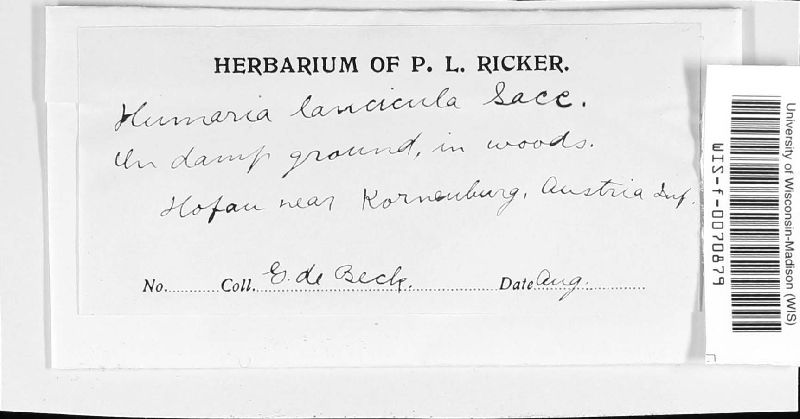 HERBARIUM OF P. L. RICKER.
Humaria lancicula Sacc.
On damp ground, in woods.
Hofau near Korneuburg, Austria Inf.
No. Coll. G. de Beck. Date Aug.
University of Wisconsin-Madison (WIS)
WIS-f-0070879